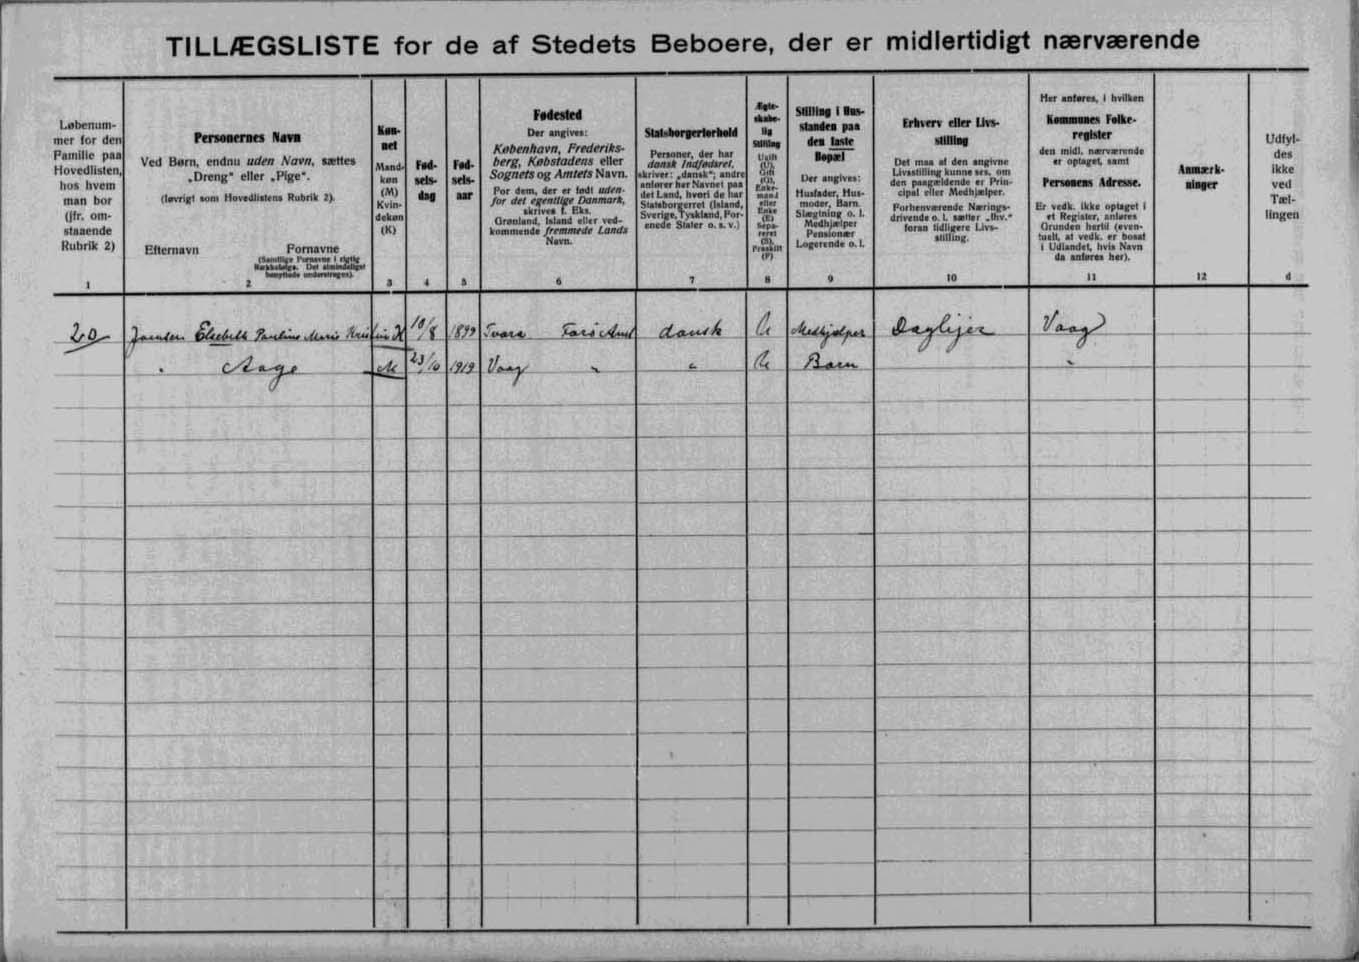 TILLÆGSLISTE for de af Stedets Beboere, der er midlertidigt nærværende
Løbenum-
mer for den
Familie paa
Hovedlisten,
hos hvem
man bor
(jfr. om-
staaende
Rubrik 2)
1
Personernes Navn
Ved Børn, endnu uden Navn, sættes
„Dreng" eller „Pige".
(Iøvrigt som Hovedlistens Rubrik 2).
Efternavn Fornavne
(Samtlige Fornavne i rigtig
Rækkefølge. Det almindeligst
benyttede understreges).
2
Køn-
net
Mand-
køn
(M)
Kvin-
dekøn
(K)
3
Fød-
sels-
dag
4
Fød-
sels-
aar
5
Fødested
Der angives:
København, Frederiks-
berg, Købstadens eller
Sognets og Amtets Navn.
For dem, der er født uden-
for det egentlige Danmark,
skrives f. Eks.
Grønland, Island eller ved-
kommende fremmede Lands
Navn.
6
Statsborgerforhold
Personer, der har
dansk Indfødsret,
skriver: „dansk"; andre
anfører her Navnet paa
det Land, hvori de har
Statsborgerret (Island,
Sverige, Tyskland, For-
enede Stater o. s. v.)
7
Ægte-
skabe-
lig
Stilling
Ugift
(U),
Gift
(G),
Enke-
mand
eller
Enke
(E)
Sepa-
reret
(S),
Fraskilt
(F)
8
Stilling i Hus-
standen paa
den faste
Bopæl
Der angives:
Husfader, Hus-
moder, Barn,
Slægtning o. l.
Medhjælper
Pensionær
Logerende o. l.
9
Erhverv eller Livs-
stilling
Det maa af den angivne
Livsstilling kunne ses, om
den paagældende er Prin-
cipal eller Medhjælper.
Forhenværende Nærings-
drivende o. l. sætter „fhv."
foran tidligere Livs-
stilling.
10
Her anføres, i hvilken
Kommunes Folke-
register
den midl. nærværende
er optaget, samt
Personens Adresse.
Er vedk. ikke optaget i
et Register, anføres
Grunden hertil (even-
tuelt, at vedk. er bosat
i Udlandet, hvis Navn
da anføres her).
11
Anmærk-
ninger
12
Udfyl-
des
ikke
ved
Tæl-
lingen
d
20 Elsebeth Pauline Marie K 10/8 1899 Tvøra Færø Amt dansk U Medhjælper Vaag
" Aage M 23/10 1919 Vaag " " U Barn "